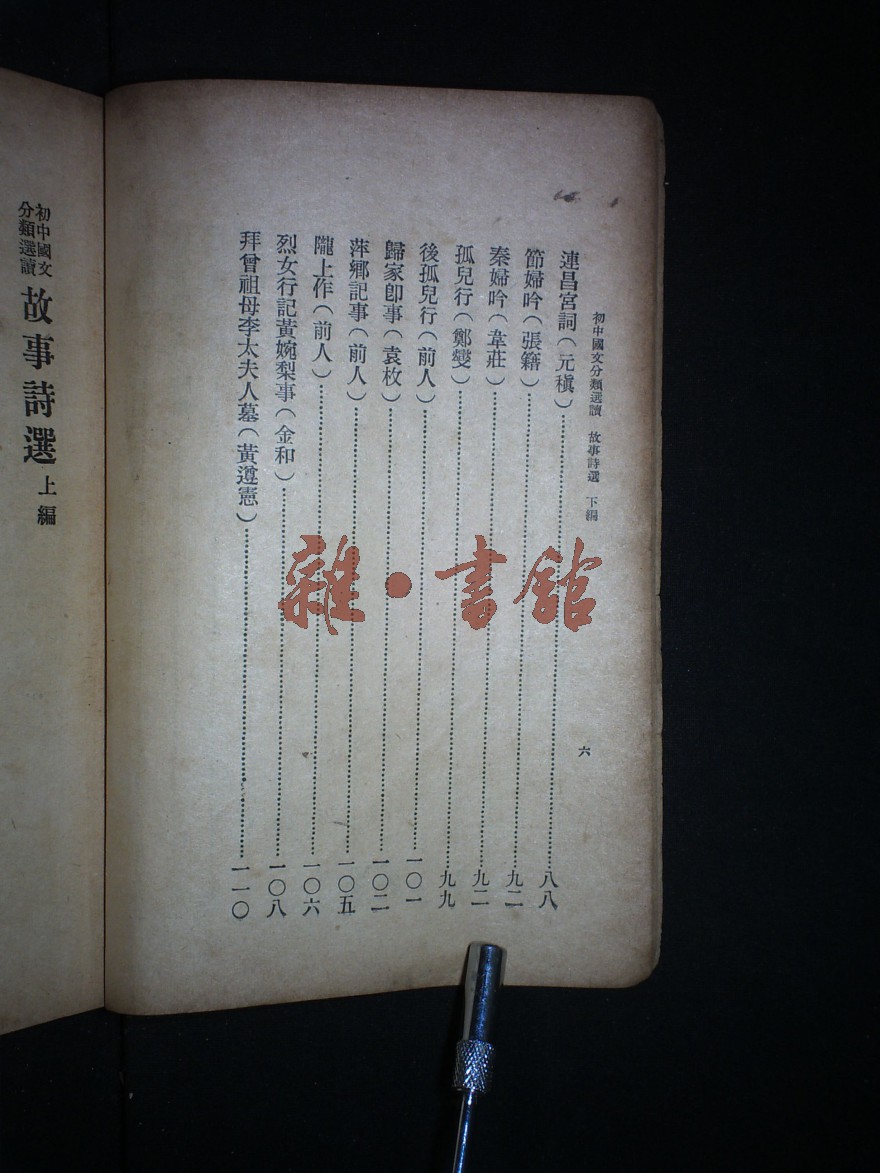 初中國文分類選讀 故事詩選 下編
六
連昌宮詞(元稹)……八八
節婦吟(張籍)……九二
秦婦吟(韋莊)……九二
孤兒行(鄭燮)……九九
後孤兒行(前人)……一〇一
歸家卽事(袁枚)……一〇二
萍鄉記事(前人)……一〇五
隴上作(前人)……一〇六
烈女行記黃婉梨事(金和)……一〇八
拜曾祖母李太夫人墓(黃遵憲)……一一〇
初中國文
分類選讀
故事詩選 上編
雜·書館